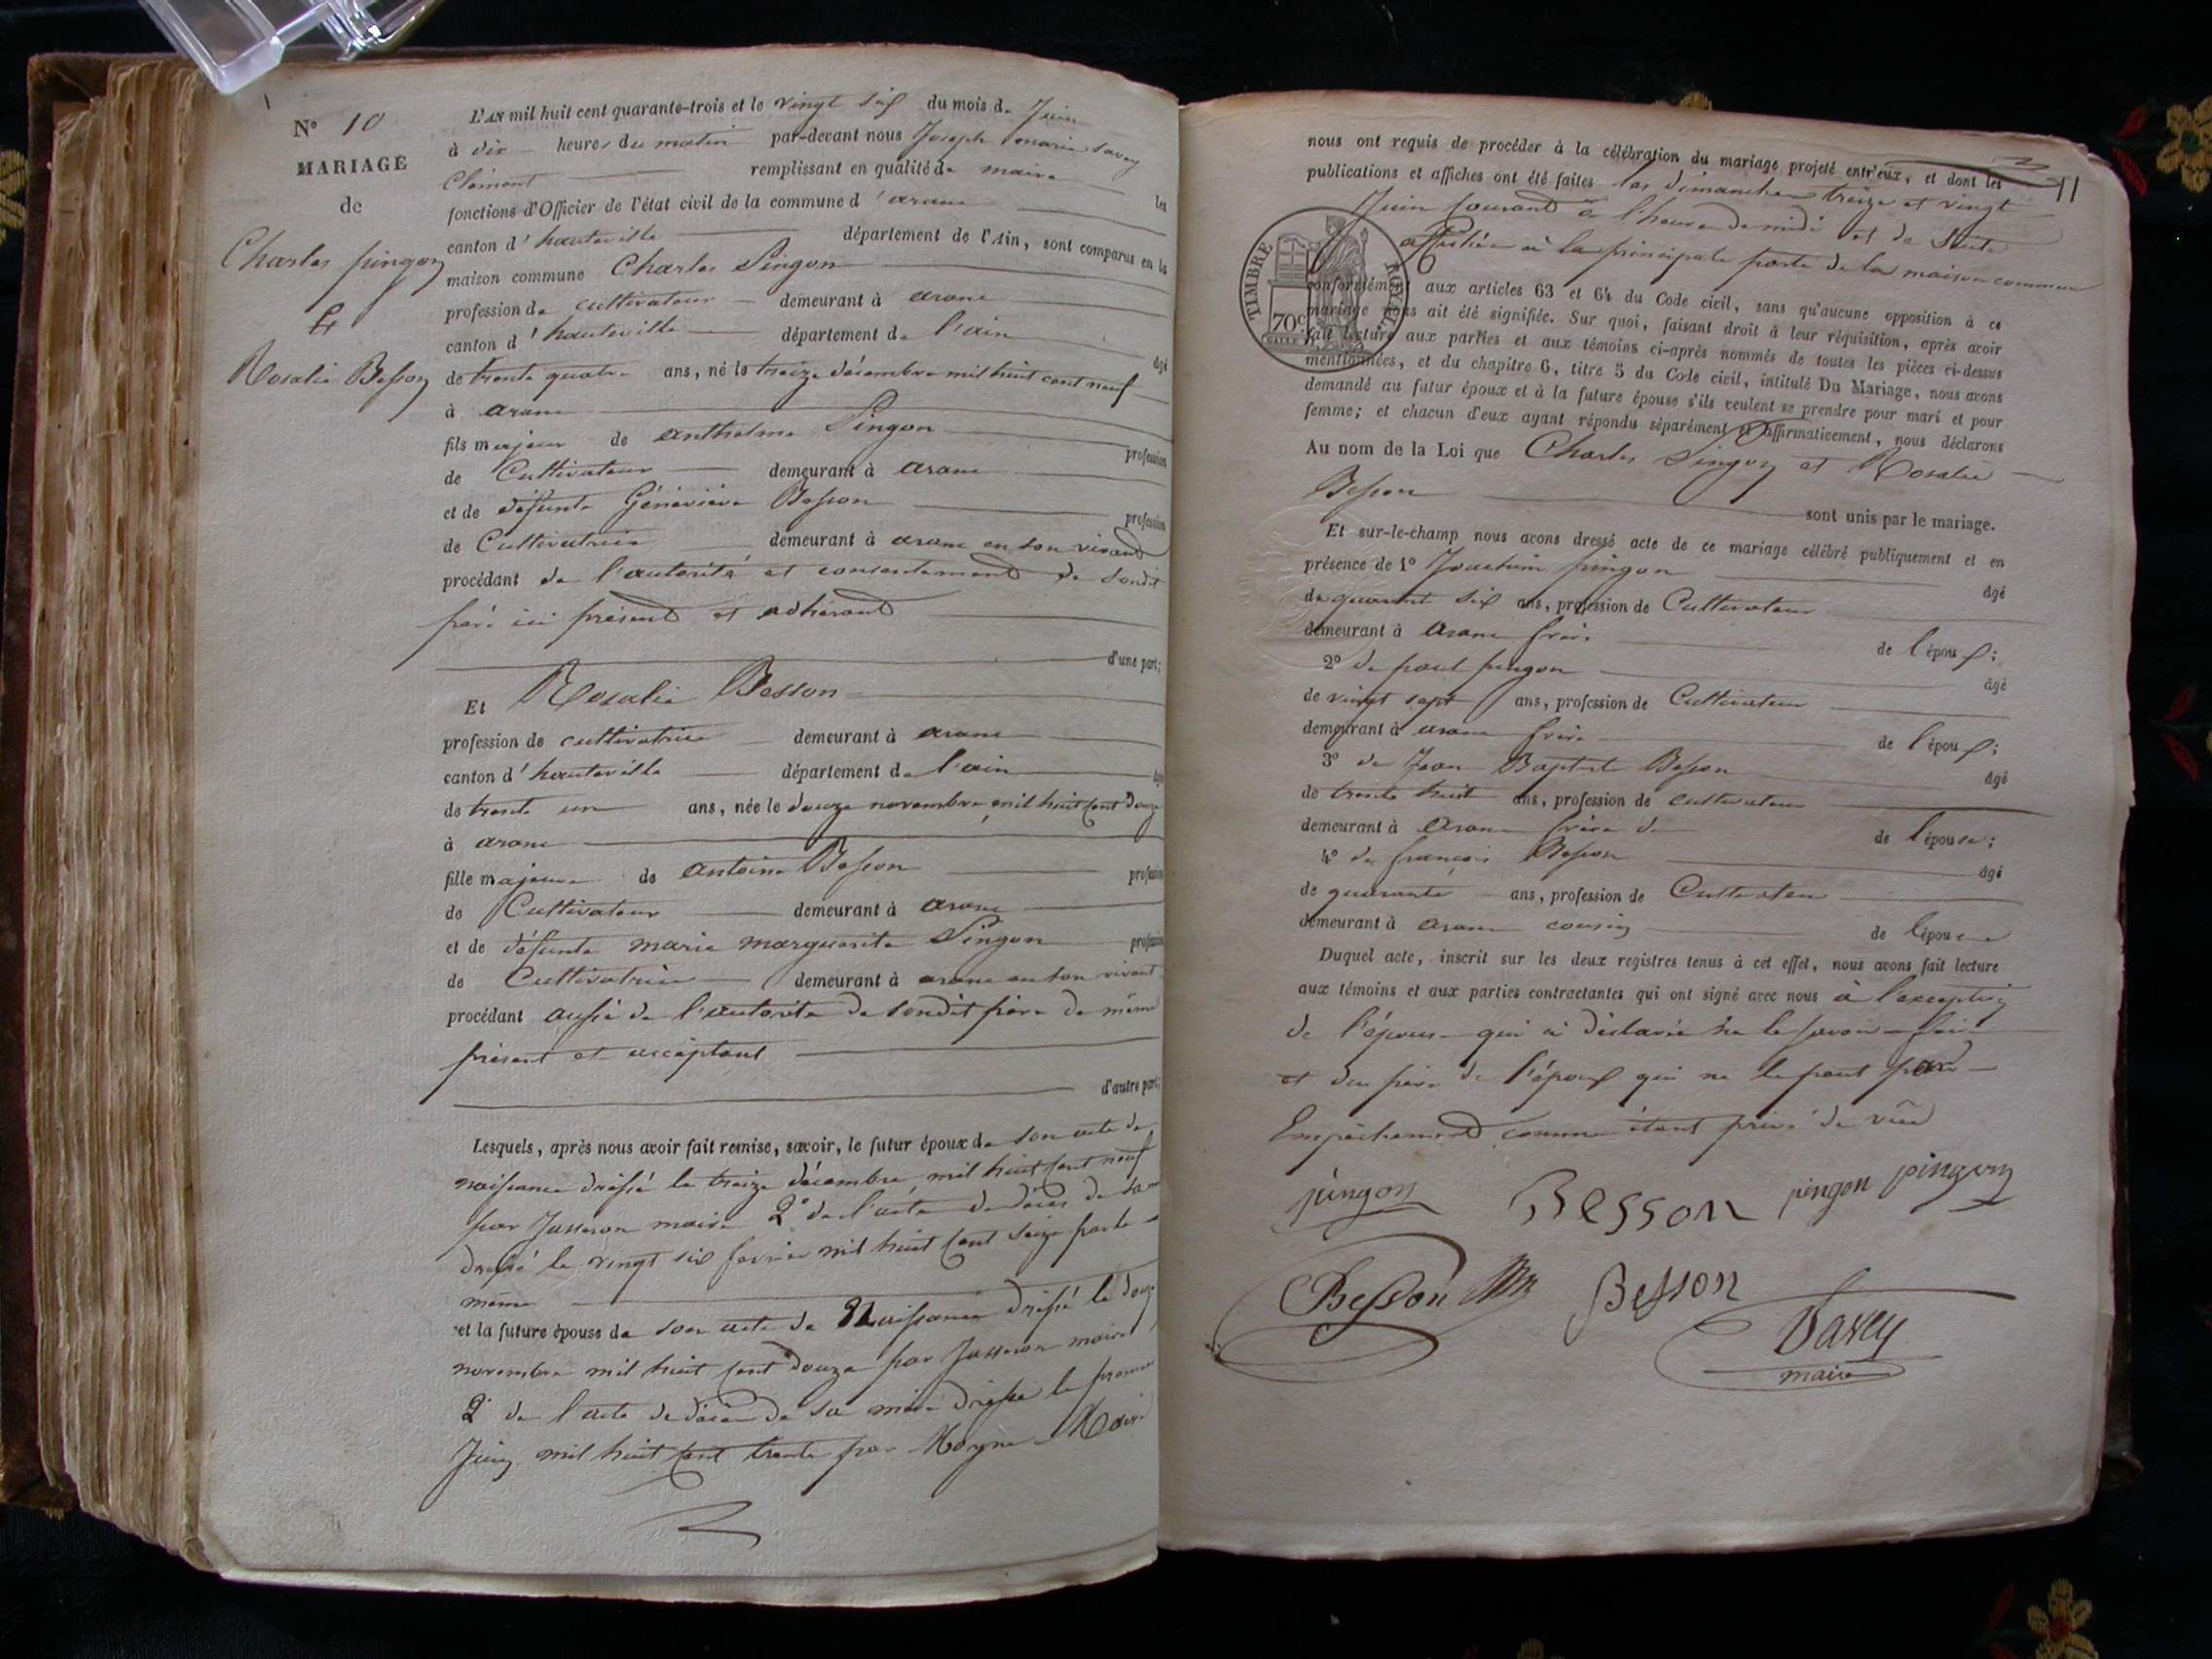 N° 10
MARIAGE
de
Charles pingon
Et
Rosalie Besson
L'AN mil huit cent quarante-trois et le vingt six du mois de Juin
à dix heures du matin par-devant nous Joseph marie Savey
Clément remplissant en qualité de maire les
fonctions d'Officier de l'état civil de la commune d'arane
canton d'hauteville département de l'Ain, sont comparus en la
maison commune Charles Pingon
profession de cultivateur demeurant à arane
canton d'hauteville département de l'ain âgé
de trente quatre ans, né le treize décembre mil huit cent neuf
à arane
fils majeur de anthelme Pingon profession
de Cultivateur demeurant à arane
et de défunte Généviève Besson profession
de Cultivatrice demeurant à arane en son vivant
procédant de l'autorité et consentement de sondit
père ici présent et adhérant
d'une part;
Et Rosalie Besson
profession de cultivatrice demeurant à arane
canton d'hauteville département de l'ain âgé
de trente un ans, née le douze novembre mil huit cent douze
à arane
fille majeure de antoine Besson profession
de Cultivateur demeurant à arane
et de défunte marie marguerite Pingon profession
de Cultivatrice demeurant à arane en son vivant
procédant aussi de l'autorité de sondit père de même
présent et acceptant
d'autre part;
Lesquels, après nous avoir fait remise, savoir, le futur époux de son acte de
naissance dressé le treize décembre mil huit cent neuf
par Jasseron maire 2° de l'acte de décès de sa
dressé le vingt six fevrier mil huit cent seize par le
même
et la future épouse de son acte de Naissance dressé le douze
novembre mil huit cent douze par Jasseron maire
2° de l'acte de décès de sa mère dressé le premier
Juin mil huit cent trente par Moyne Maire
11
nous ont requis de procéder à la célébration du mariage projeté entr'eux, et dont les
publications et affiches ont été faites les dimanches treize et vingt
Juin courant à l'heure de midi et de suite
affichées à la principale porte de la maison commune
TIMBRE ROYAL
70c
conformément aux articles 63 et 64 du Code civil, sans qu'aucune opposition à ce
mariage nous ait été signifiée. Sur quoi, faisant droit à leur réquisition, après avoir
fait lecture aux parties et aux témoins ci-après nommés de toutes les pièces ci-dessus
mentionnées, et du chapitre 6, titre 5 du Code civil, intitulé Du Mariage, nous avons
demandé au futur époux et à la future épouse s'ils veulent se prendre pour mari et pour
femme; et chacun d'eux ayant répondu séparément et affirmativement, nous déclarons
Au nom de la Loi que Charles Pingon et Rosalie
Besson sont unis par le mariage.
Et sur-le-champ nous avons dressé acte de ce mariage célébré publiquement et en
présence de 1° Joachim pingon âgé
de quarante six ans, profession de Cultivateur
demeurant à arane frère de l'époux;
2° de paul pingon âgé
de vingt sept ans, profession de Cultivateur
demeurant à arane frère de l'époux;
3° de Jean Baptiste Besson âgé
de trente huit ans, profession de cultivateur
demeurant à arane frère de de l'épouse;
4° de françois Besson âgé
de quarante ans, profession de Cultivateur
demeurant à arane cousin de l'épouse
Duquel acte, inscrit sur les deux registres tenus à cet effet, nous avons fait lecture
aux témoins et aux parties contractantes qui ont signé avec nous à l'exception
de l'épouse qui a déclarée ne le savoir faire
et du père de l'époux qui ne le peut par
Empêchement comme étant privé de vue
pingon Besson pingon pingon
Besson Besson
Savey
maire